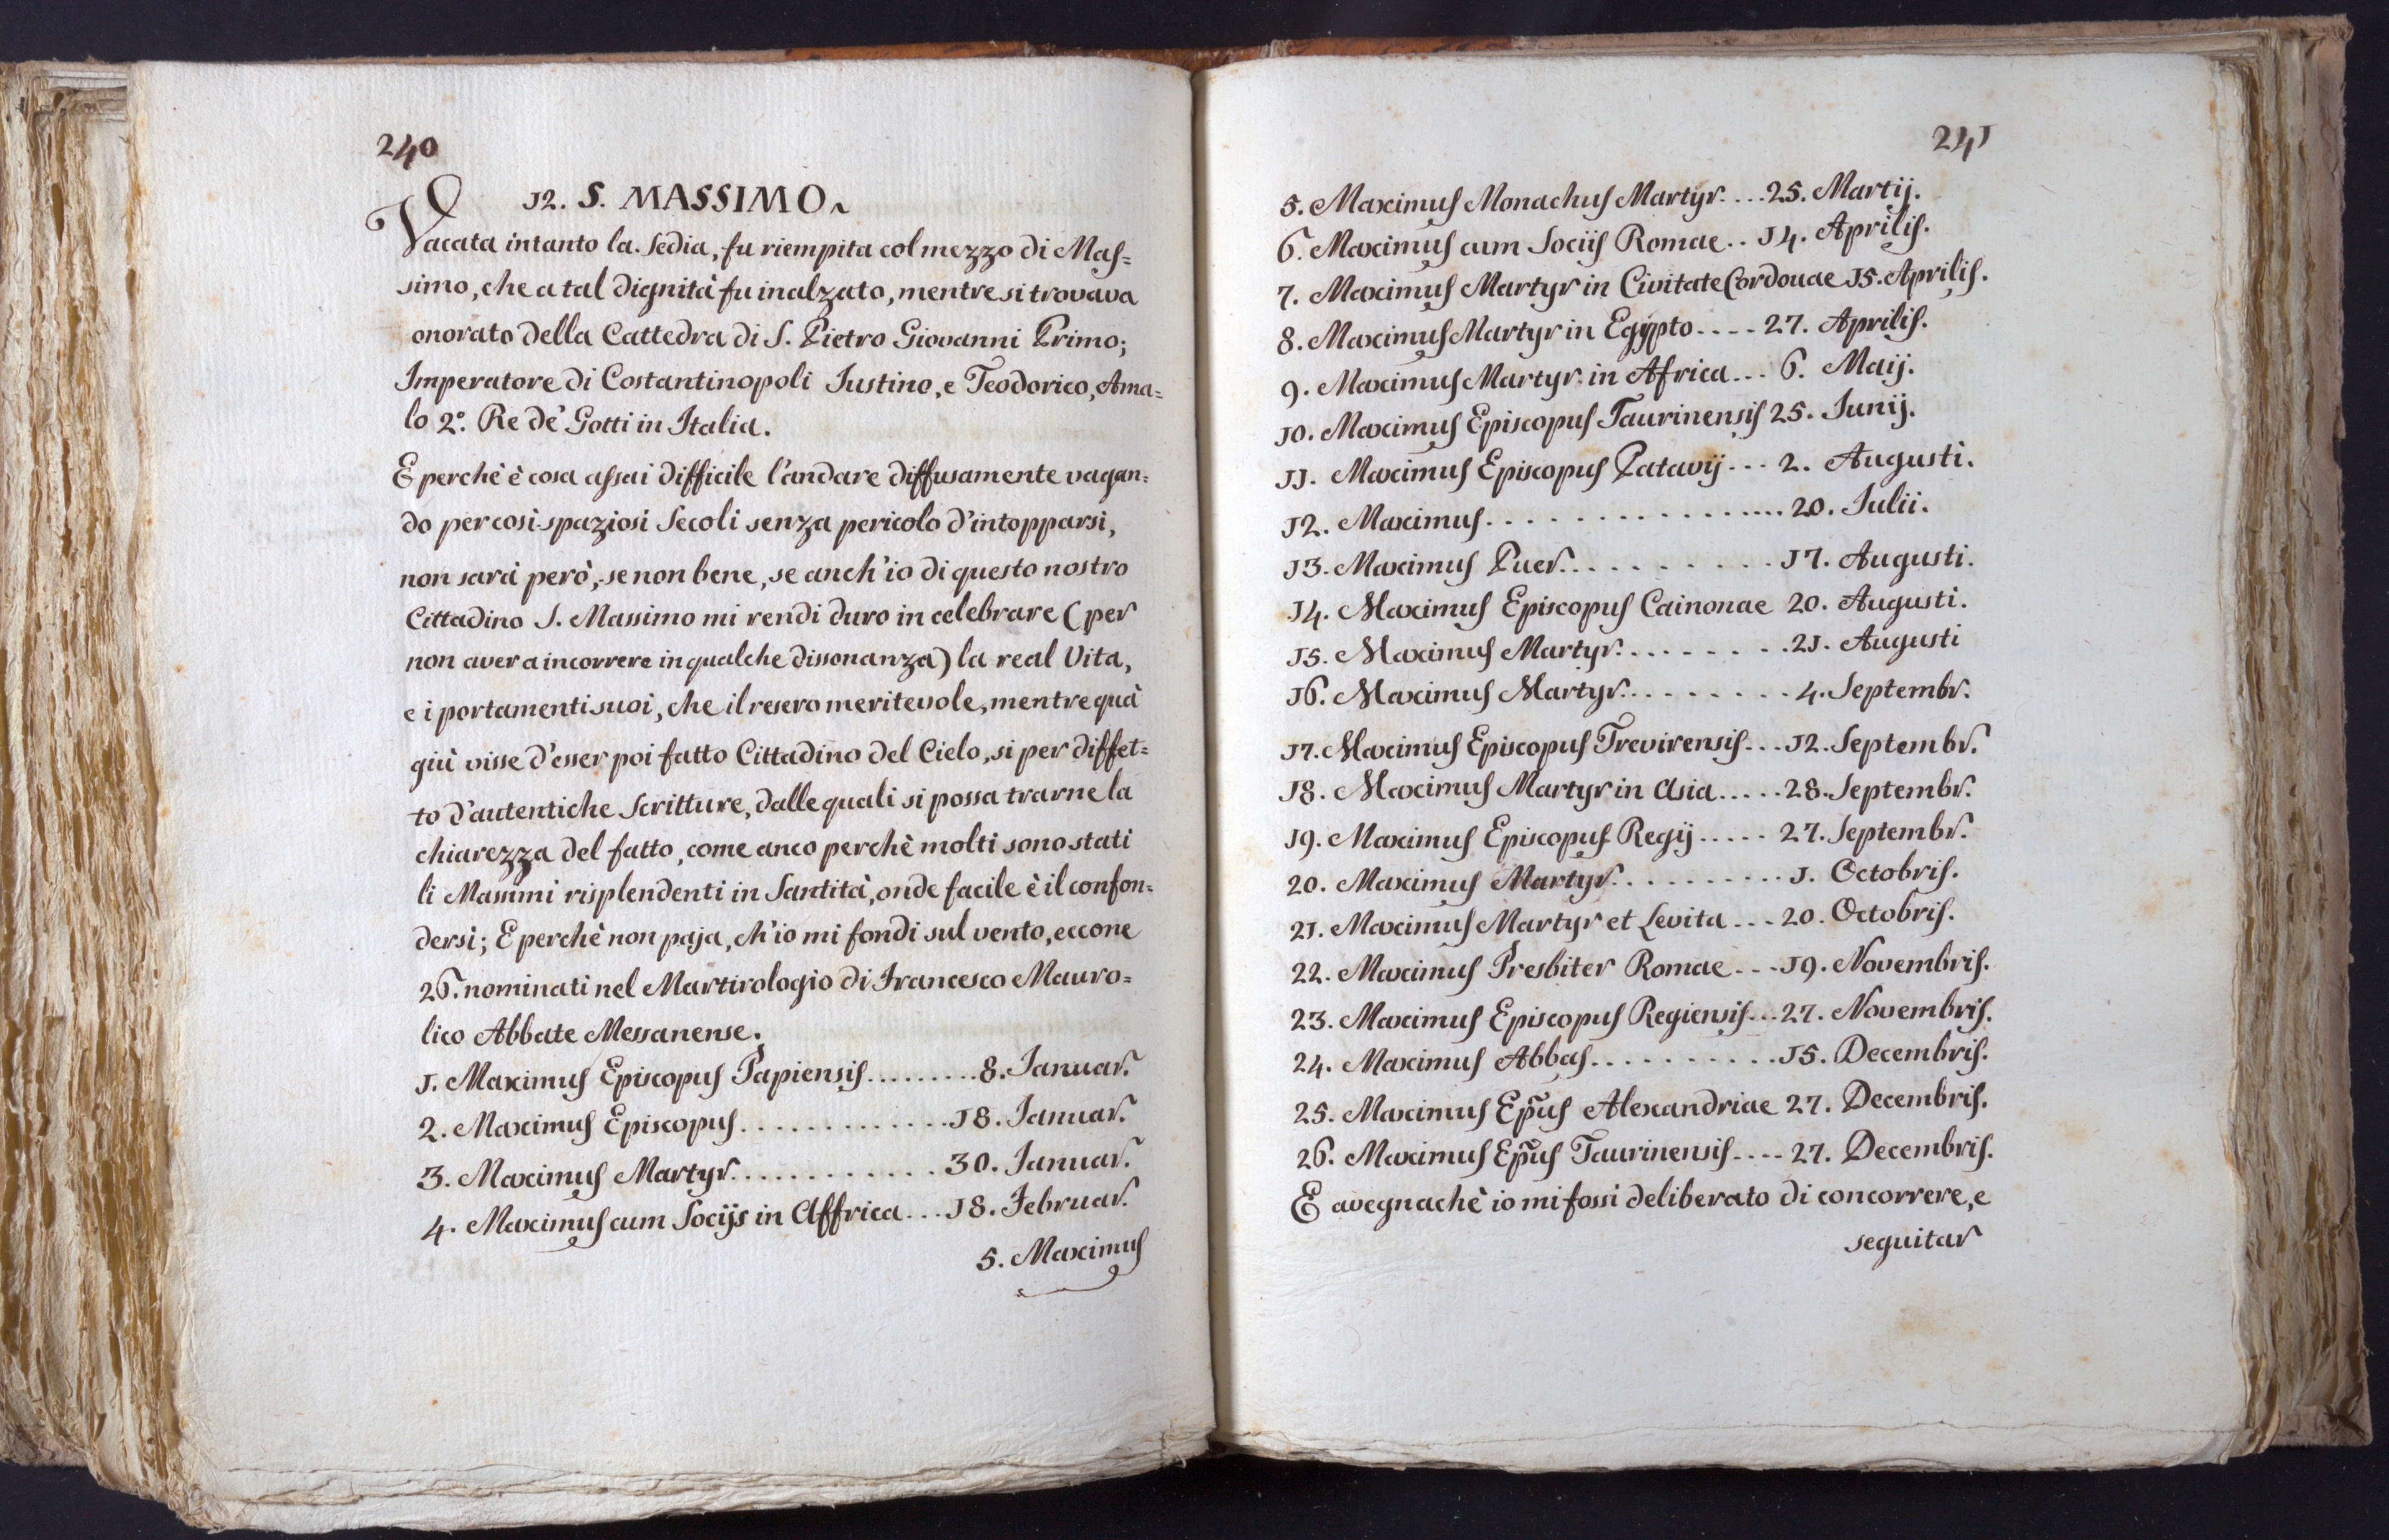 240
12. S. MASSIMO
Vacata intanto la Sedia, fu riempita col mezzo di Mas=
simo, che a tal dignità fu inalzato, mentre si trovava
onorato della Cattedra di S. Pietro Giovanni Primo;
Imperatore di Costantinopoli Iustino, e Teodorico, Ama=
lo 2º. Re de' Gotti in Italia.
E perchè è cosa assai difficile l'andare diffusamente vagan=
do per così spaziosi Secoli senza pericolo d'intopparsi,
non sarà però, se non bene, se anch'io di questo nostro
Cittadino S. Massimo mi rendi duro in celebrare (per
non aver a incorrere in qualche dissonanza) la real Vita,
e i portamenti suoi, che il resero meritevole, mentre quà
giù visse d'esser poi fatto Cittadino del Cielo, si per diffet=
to d'autentiche Scritture, dalle quali si possa trarne la
chiarezza del fatto, come anco perchè molti sono stati
li Massimi risplendenti in Santità, onde facile è il confon=
dersi; E perchè non paja, ch'io mi fondi sul vento, eccone
26. nominati nel Martirologio di Francesco Mauro=
lico Abbate Messanense.
1. Maximus Episcopus Papiensis.........8. Ianuar.
2. Maximus Episcopus.............18. Ianuar.
3. Maximus Martyr.............30. Ianuar.
4. Maximus cum Socijs in Affrica...18. Februar.
5. Maximus
241
5. Maximus Monachus Martyr....25. Martij.
6. Maximus cum Sociis Romae..14. Aprilis.
7. Maximus Martyr in Civitate Cordouae 15. Aprilis.
8. Maximus Martyr in Egypto....27. Aprilis.
9. Maximus Martyr in Africa...6. Maij.
10. Maximus Episcopus Taurinensis 25. Iunij.
11. Maximus Episcopus Patavij...2. Augusti.
12. Maximus................20. Iulii.
13. Maximus Puer...........17. Augusti.
14. Maximus Episcopus Cainonae 20. Augusti.
15. Maximus Martyr.........21. Augusti
16. Maximus Martyr.........4. Septembr.
17. Maximus Episcopus Trevirensis...12. Septembr.
18. Maximus Martyr in Asia.....28. Septembr.
19. Maximus Episcopus Regij.....27. Septembr.
20. Maximus Martyr...........1. Octobris.
21. Maximus Martyr et Levita...20. Octobris.
22. Maximus Presbiter Romae...19. Novembris.
23. Maximus Episcopus Regiensis...27. Novembris.
24. Maximus Abbas..........15. Decembris.
25. Maximus Ep̃us Alexandriae 27. Decembris.
26. Maximus Ep̃us Taurinensis....27. Decembris.
E avegnachè io mi fossi deliberato di concorrere, e
seguitar